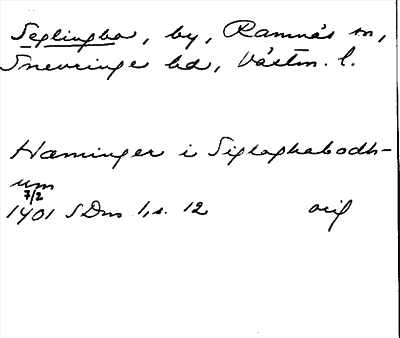 Seglingbo, by, Ramnäs sn,
Snevringe hd, Västm. l.
Haminger i Siglaghabodh-
um
7/2
1401 SDns 1, s. 12 orig